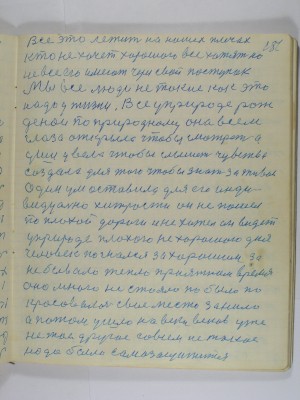 Все это лежит на наших плечах
кто не хочет хорошего все хотят но
не все его имеют чрез свой поступок
Мы все люди не такие как это
надо жизни. Все у природе рож
дено и по природному она всем
глаза открыло чтобы смотреть а
уши двела чтобы слышит чувство
создала для того чтобы знать за
Один ум оставило для его инди
видуально хитрость он не пошел
по плохой дороги и не хотел он видет
у природе плохого не хорошего дня
человек погнался за хорошим за
не бывало тепло приятным время
оно много не стояло побыло по
красовалось свое место заняло
а потом ушло на века веков уже
не такое другое совсем не такое
надо было самозащитится